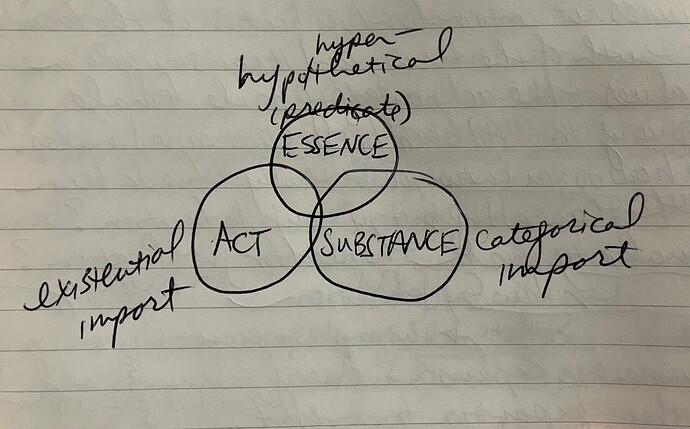 hyper-
hypothetical
(predicate)
ESSENCE
ACT
SUBSTANCE
existential
import
categorical
import